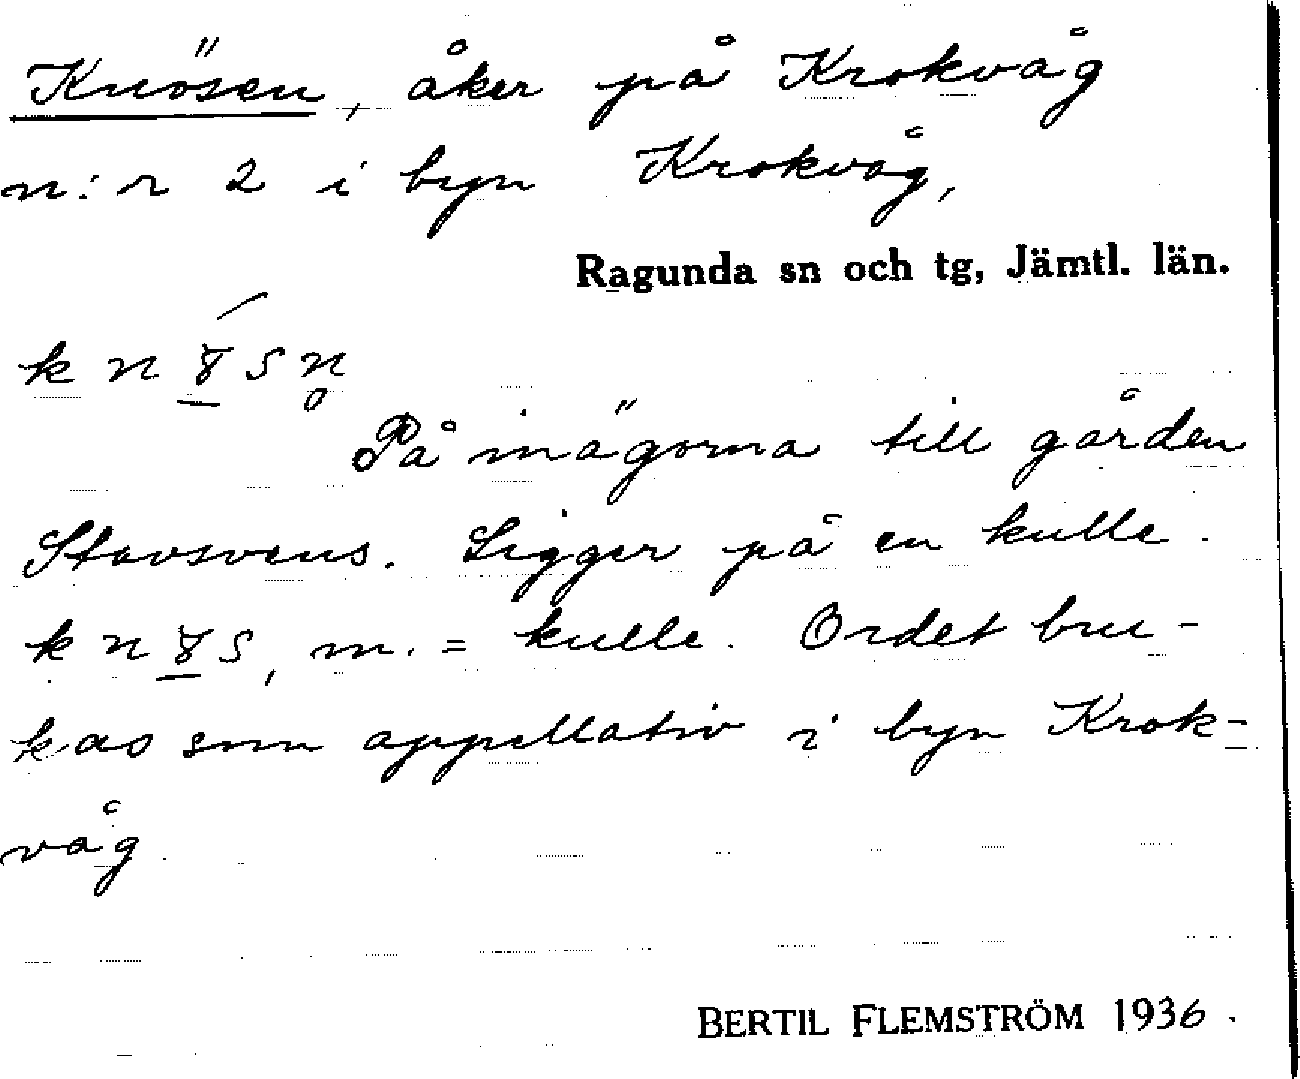 Knösen, åker på Krokvåg
n:r 2 i byn Krokvåg,
Ragunda sn och tg, Jämtl. län.
På inägorna till gården
Stavsvens. Ligger på en kulle.
m. = kulle. Ordet bru-
kas som appellativ i byn Krok-
våg.
BERTIL FLEMSTRÖM 1936.